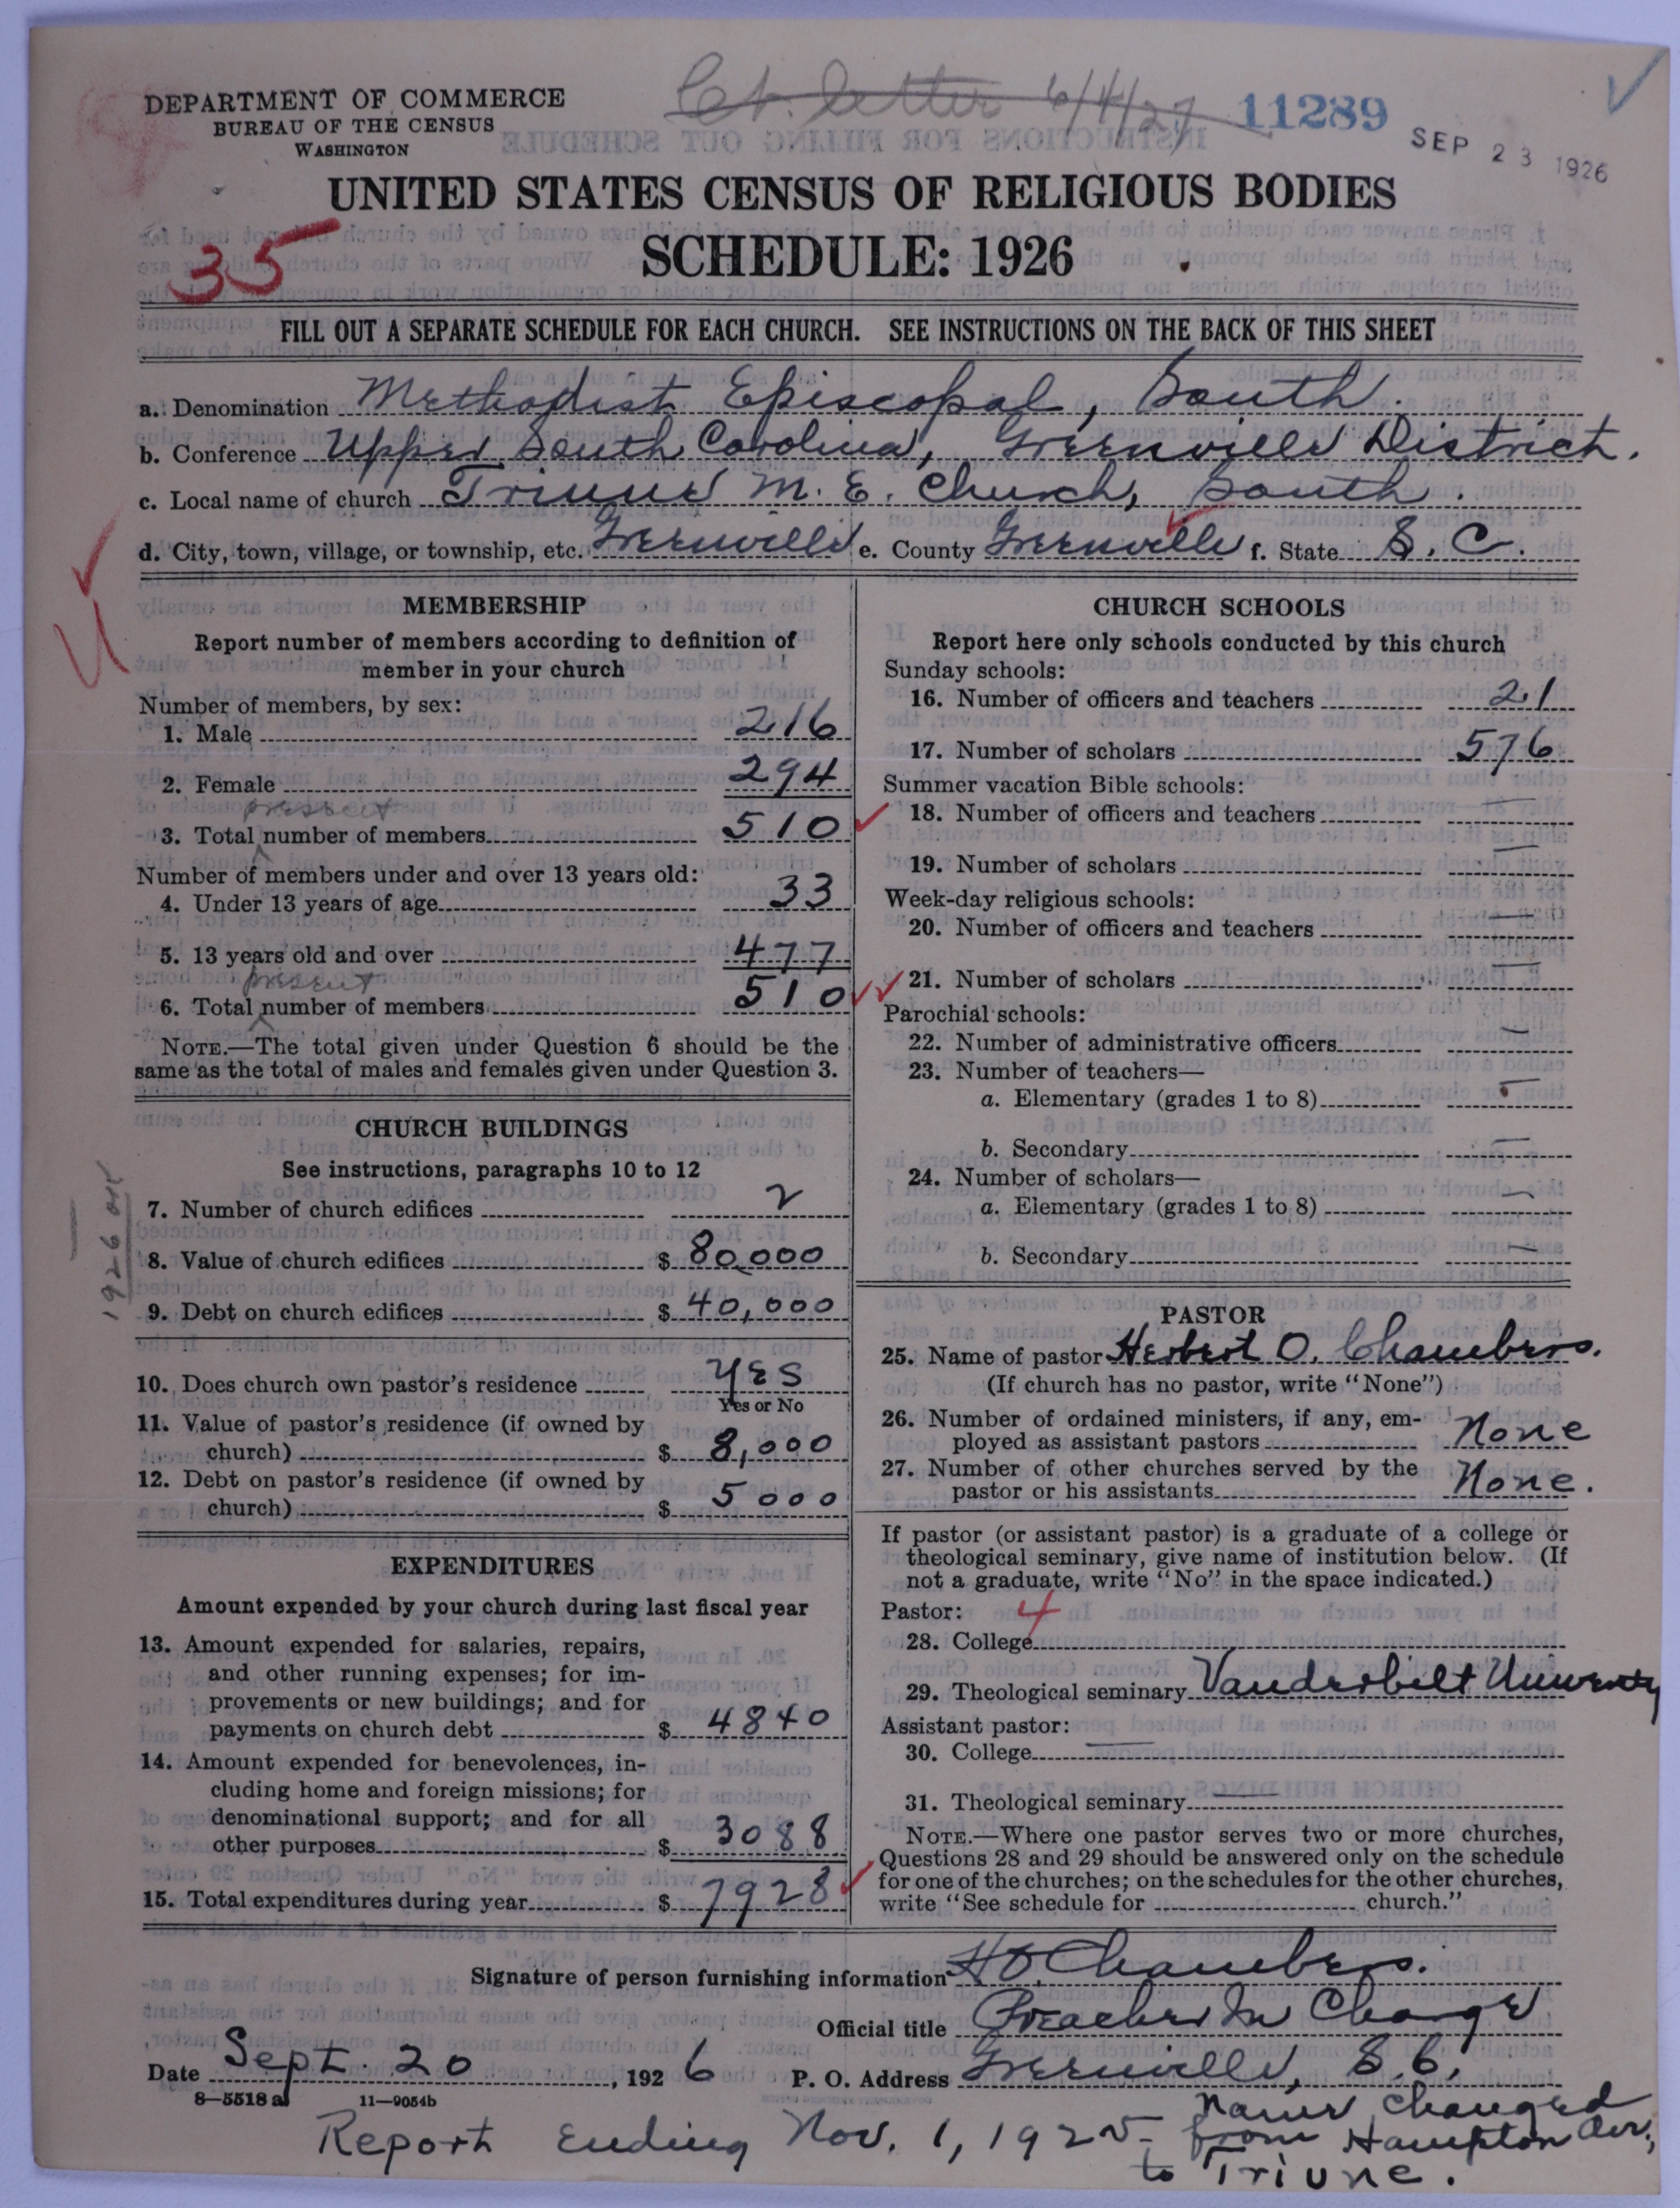 Ct. letter 6/4/27
11289
SEP 23 1926
DEPARTMENT OF COMMERCE
BUREAU OF THE CENSUS
WASHINGTON
UNITED STATES CENSUS OF RELIGIOUS BODIES
SCHEDULE: 1926
35
FILL OUT A SEPARATE SCHEDULE FOR EACH CHURCH. SEE INSTRUCTIONS ON THE BACK OF THIS SHEET
a. Denomination Methodist Episcopal, South.
b. Conference Upper South Carolina, Greenville District.
c. Local name of church Triune M. E. Church, South.
d. City, town, village, or township, etc. Greenville e. County Greenville f. State S. C.
MEMBERSHIP
Report number of members according to definition of
member in your church
Number of members, by sex:
1. Male 216
2. Female 294
present
3. Total number of members 510
Number of members under and over 13 years old:
4. Under 13 years of age 33
5. 13 years old and over 477
present
6. Total number of members 510
NOTE.—The total given under Question 6 should be the
same as the total of males and females given under Question 3.
CHURCH BUILDINGS
See instructions, paragraphs 10 to 12
1926
7. Number of church edifices 2
8. Value of church edifices $ 80,000
9. Debt on church edifices $ 40,000
10. Does church own pastor's residence Yes
Yes or No
11. Value of pastor's residence (if owned by
church) $ 8,000
12. Debt on pastor's residence (if owned by
church) $ 5000
EXPENDITURES
Amount expended by your church during last fiscal year
13. Amount expended for salaries, repairs,
and other running expenses; for im-
provements or new buildings; and for
payments on church debt $ 4840
14. Amount expended for benevolences, in-
cluding home and foreign missions; for
denominational support; and for all
other purposes $ 3088
15. Total expenditures during year $ 7928
CHURCH SCHOOLS
Report here only schools conducted by this church
Sunday schools:
16. Number of officers and teachers 21
17. Number of scholars 576
Summer vacation Bible schools:
18. Number of officers and teachers —
19. Number of scholars —
Week-day religious schools:
20. Number of officers and teachers —
21. Number of scholars —
Parochial schools:
22. Number of administrative officers —
23. Number of teachers—
a. Elementary (grades 1 to 8) —
b. Secondary —
24. Number of scholars—
a. Elementary (grades 1 to 8) —
b. Secondary —
PASTOR
25. Name of pastor Herbert O. Chambers.
(If church has no pastor, write "None")
26. Number of ordained ministers, if any, em-
ployed as assistant pastors None
27. Number of other churches served by the
pastor or his assistants None.
If pastor (or assistant pastor) is a graduate of a college or
theological seminary, give name of institution below. (If
not a graduate, write "No" in the space indicated.)
Pastor: 4
28. College
29. Theological seminary Vanderbilt University
Assistant pastor:
30. College —
31. Theological seminary —
NOTE.—Where one pastor serves two or more churches,
Questions 28 and 29 should be answered only on the schedule
for one of the churches; on the schedules for the other churches,
write "See schedule for church."
Signature of person furnishing information H O. Chambers.
Official title Preacher In Charge
Date Sept. 20, 1926 P. O. Address Greenville, S. C.
8—5518 a 11—9054b
Report Ending Nov. 1, 1925
Name changed
from Hampton Ave,
to Triune.